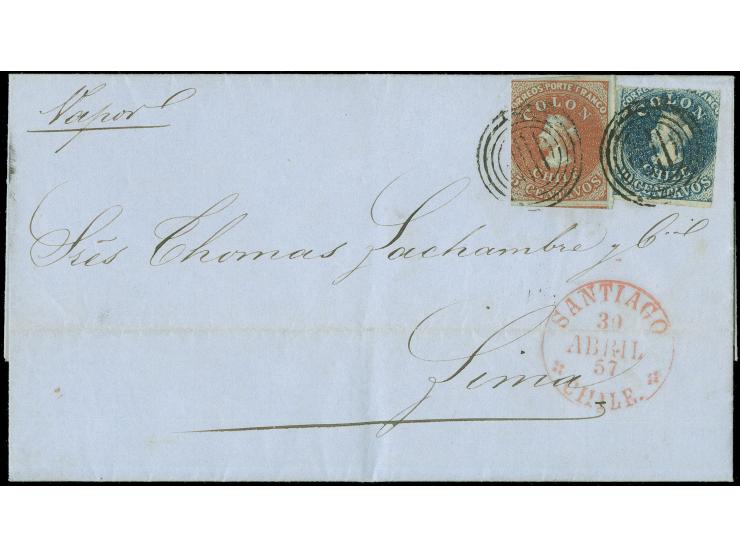 Vapor
CORREOS PORTE FRANCO
COLON
CHILE
5 CENTAVOS
COLON
CHILE
10 CENTAVOS
Srēs Thomas Lachambre y Cia
Lima
SANTIAGO
30
ABRIL
57
CHILE.